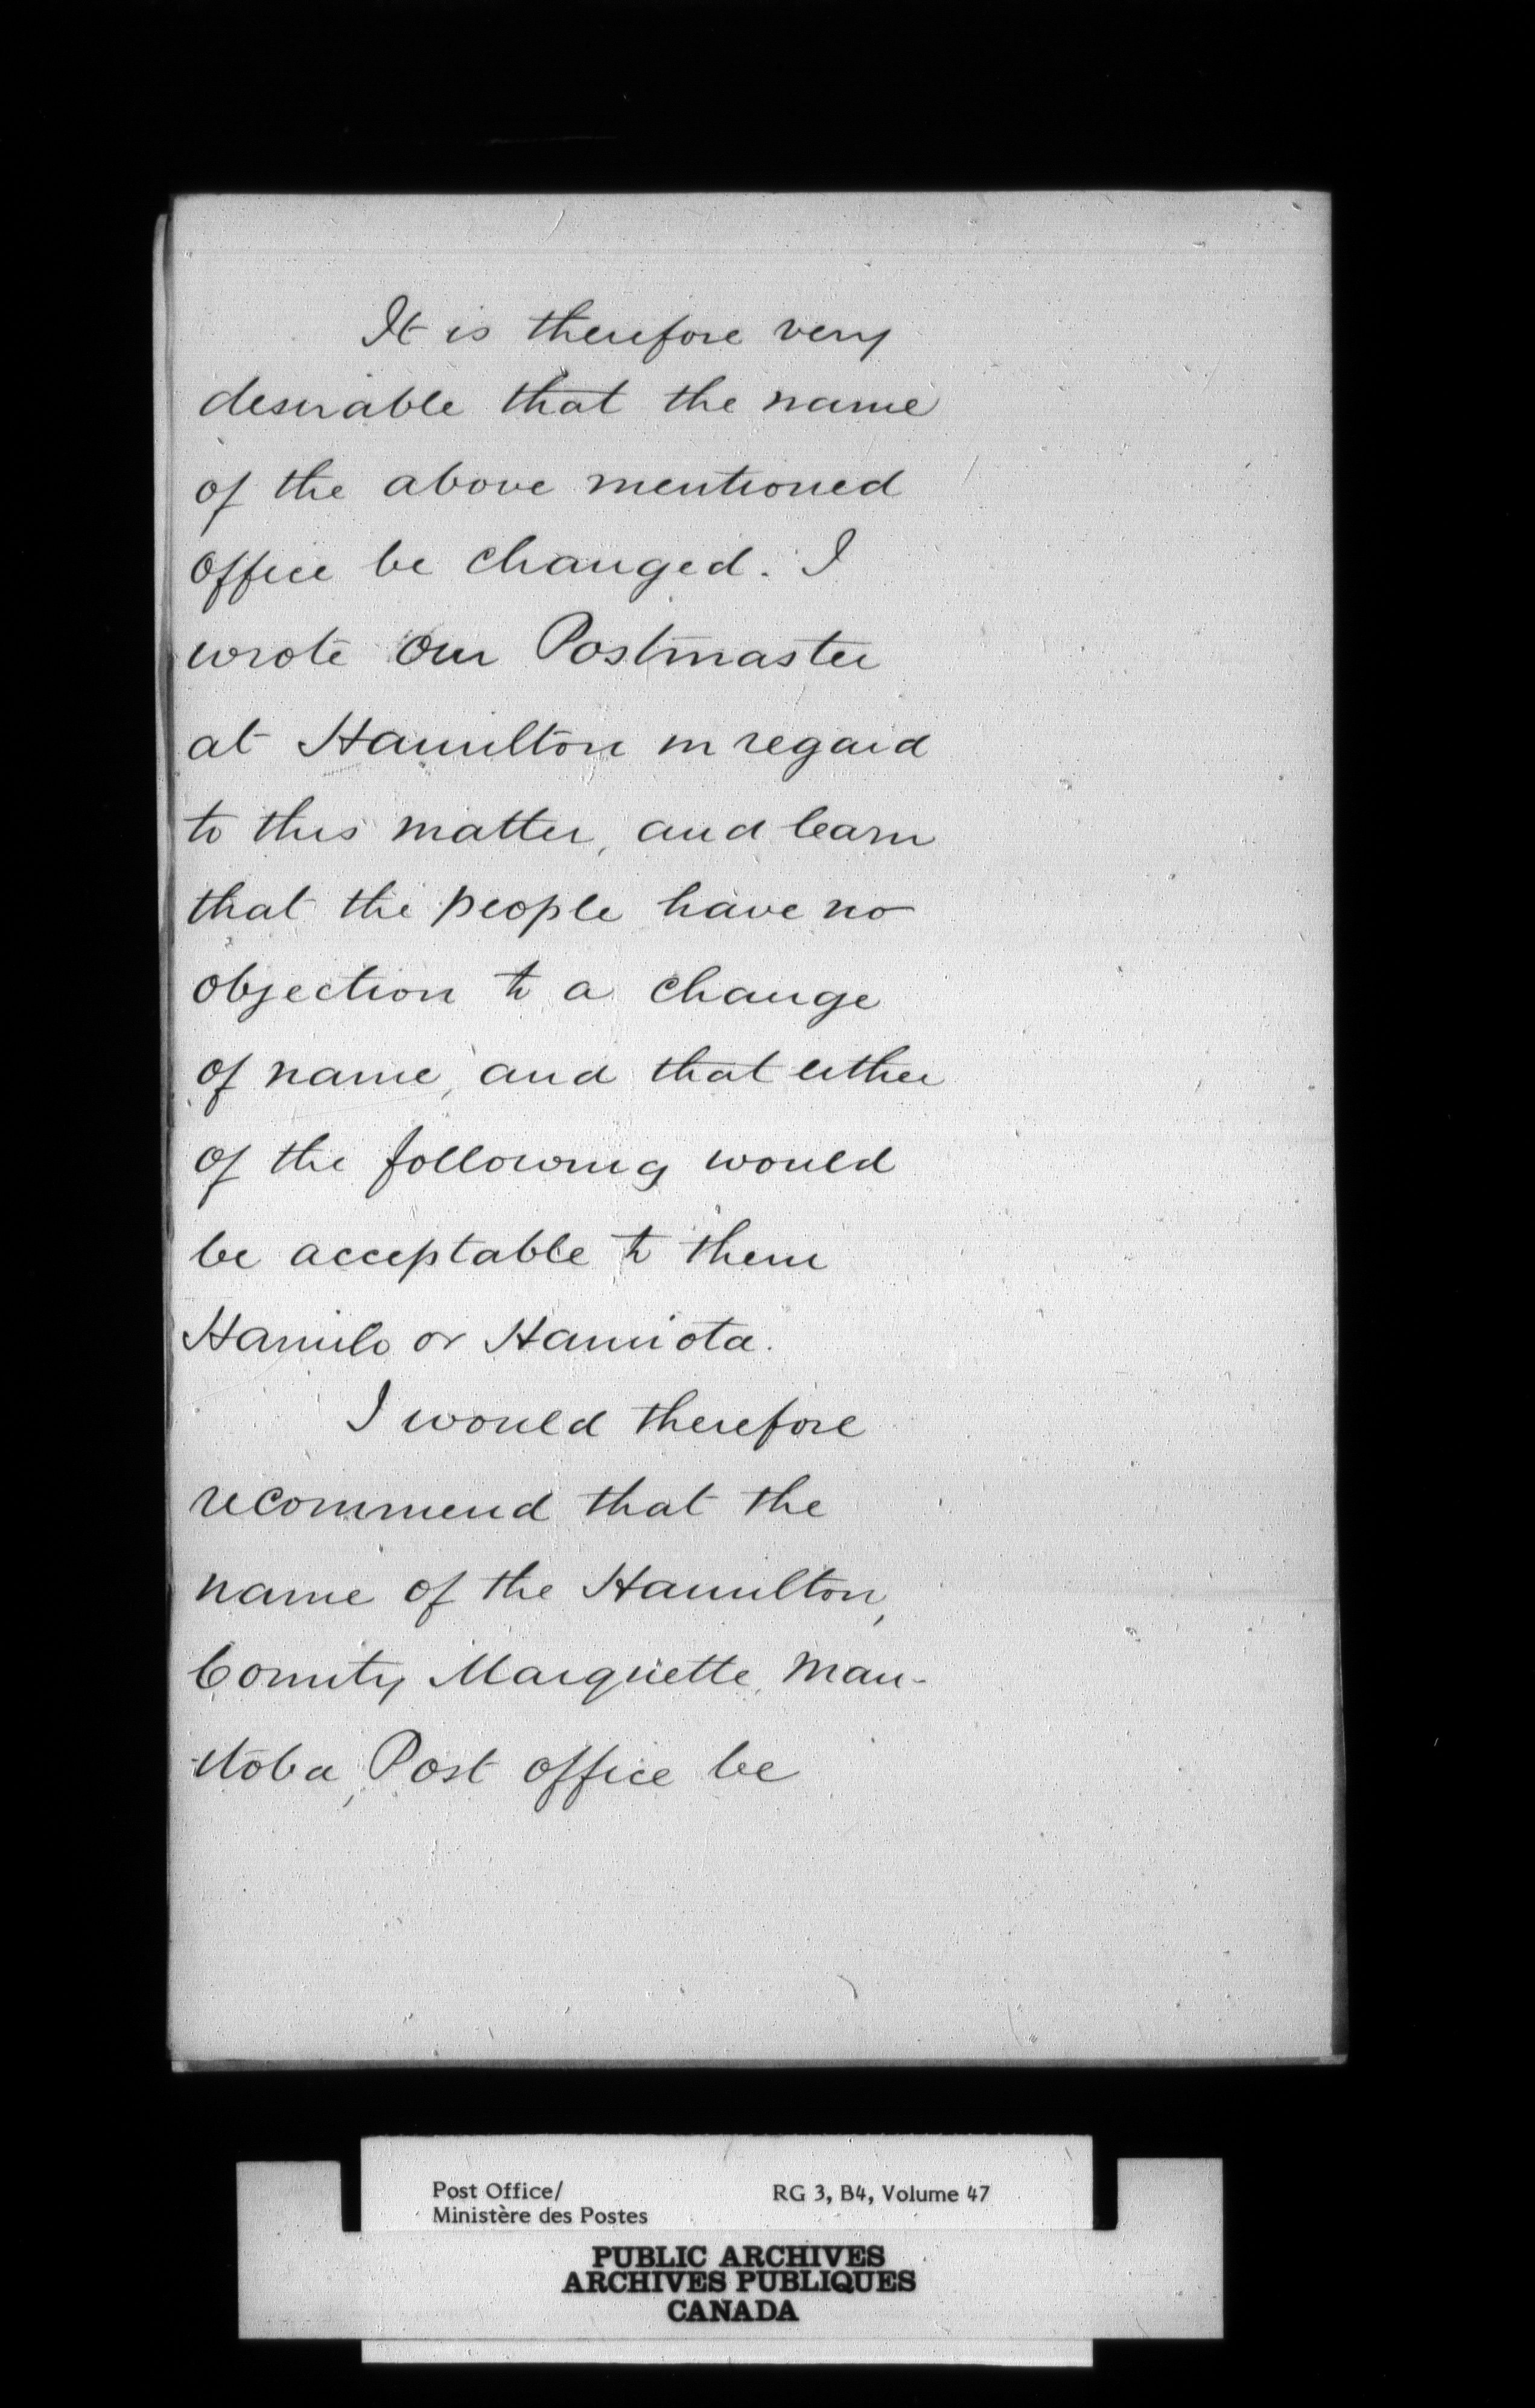 It is therefore very
desirable that the name
of the above mentioned
office be changed. I
wrote our Postmaster
at Hamilton in regard
to this matter, and learn
that the people have no
objection to a change
of name, and that either
of the following would
be acceptable to them
Hamilo or Hamiota.
I would therefore
recommend that the
name of the Hamilton,
County Marquette, Man-
-itoba, Post office be
Post Office/
Ministère des Postes
RG 3, B4, Volume 47
PUBLIC ARCHIVES
ARCHIVES PUBLIQUES
CANADA